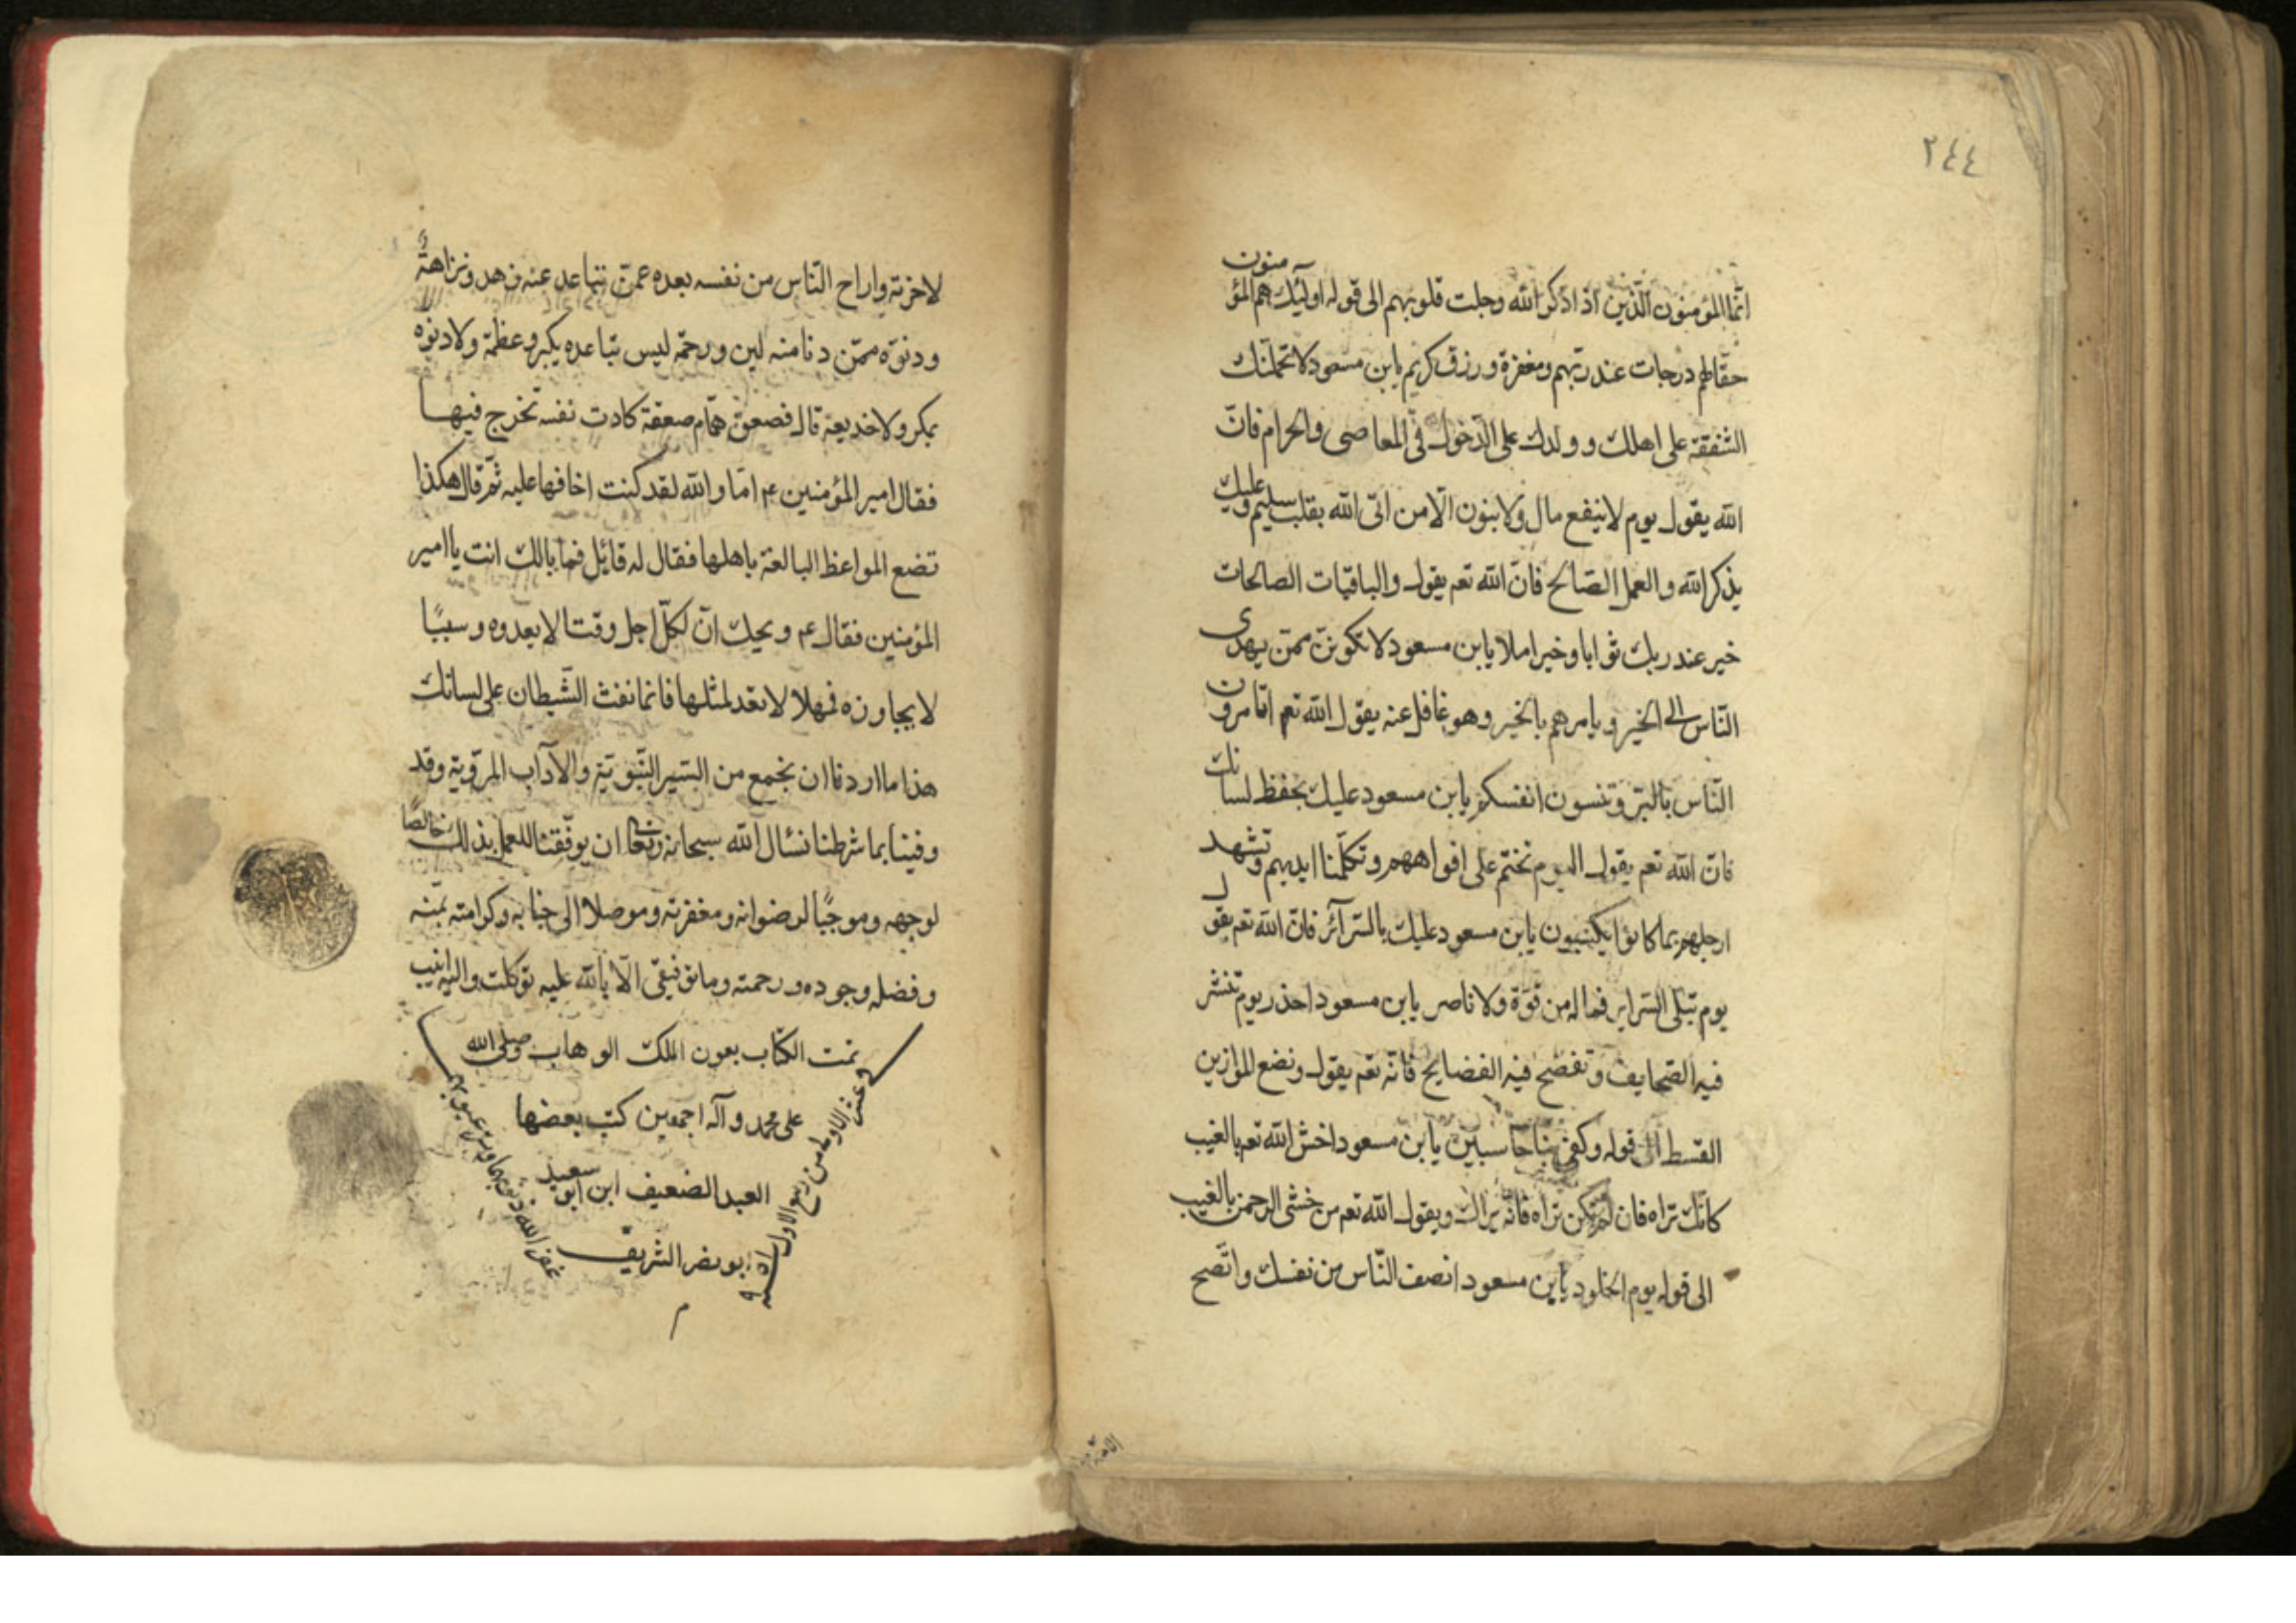 ٢٤٤
انّما المؤمنون الّذين اذا ذكر الله وجلت قلوبهم الى قوله اولئك هم المؤمنون
حقّا لهم درجات عند ربّهم ومغفرة ورزق كريم يابن مسعود لا تحملنّك
الشفقة على اهلك وولدك على الدّخول في المعاصى والحرام فانّ
الله يقول يوم لا ينفع مال ولا بنون الّا من اتى الله بقلب سليم وعليك
بذكر الله والعمل الصّالح فانّ الله تعم يقول والباقيات الصالحات
خير عند ربك ثوابا وخير املا يابن مسعود لا تكوننّ ممّن يهدى
النّاس الى الخير ويامرهم بالخير وهو غافل عنه يقول الله تعم اتامرون
النّاس بالبرّ وتنسون انفسكم يابن مسعود عليك بحفظ لسانك
فانّ الله تعم يقول اليوم نختم على افواههم وتكلّمنا ايديهم وتشهد
ارجلهم بما كانوا يكسبون يابن مسعود عليك بالسّرآئر فانّ الله تعم يقول
يوم تبلى السّراير فما له من قوّة ولا ناصر يابن مسعود احذر يوم تنشر
فيه الصّحايف وتفضح فيه الفضايح فانّه تعم يقول ونضع الموازين
القسط الى قوله وكفى بنا حاسبين يابن مسعود اخش الله تعم بالغيب
كانّك تراه فان لم تكن تراه فانّه يراك ويقول الله تعم من خشى الرحمن بالغيب
الى قوله يوم الخلود يابن مسعود انصف النّاس من نفسك وانصح
الامّة
لاخرته واراح النّاس من نفسه بعده عمّن تباعد عنه زهد ونزاهةً
ودنوّه ممّن دنا منه لين ورحمة ليس تباعده بكبر وعظمة ولا دنوّه
بمكر ولا خديعة قال فصعق همّام صعقة كادت نفسه تخرج فيها
فقال امير المؤمنين عم امّا والله لقد كنت اخافها عليه ثمّ قال هكذا
تضع المواعظ البالغة باهلها فقال له قائل فما بالك انت يا امير
المؤمنين فقال عم ويحك انّ لكلّ اجل وقتا لا يعدوه وسببًا
لا يجاوزه فمهلا لا تعد لمثلها فانما نفث الشّيطان على لسانك
هذا ما اردنا ان نجمع من السّير النّبويّة والآداب المرويّة وقد
وفينا بما شرطنا نسئال الله سبحانه وتعا ان يوفّقنا للعمل بذلك خالصًا
لوجهه وموجبًا لرضوانه ومغفرته وموصلا الى جنابه وكرامته بمنّه
وفضله وجوده ورحمته وما توفيقى الّا بالله عليه توكّلت واليه انيب
تمت الكتاب بعون الملك الوهاب وصلى الله
على محمد وآله اجمعين كتب بعضها
العبد الضعيف ابن ابو سعيد
ابو نصر الشريف
غفر الله ذنوبهما وستر عيوبهما
من ربيع الاول
م